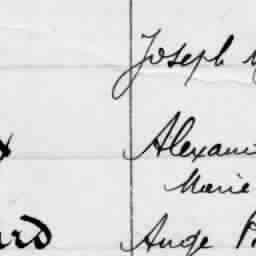 Joseph
Alexan
Marie
ard Ange